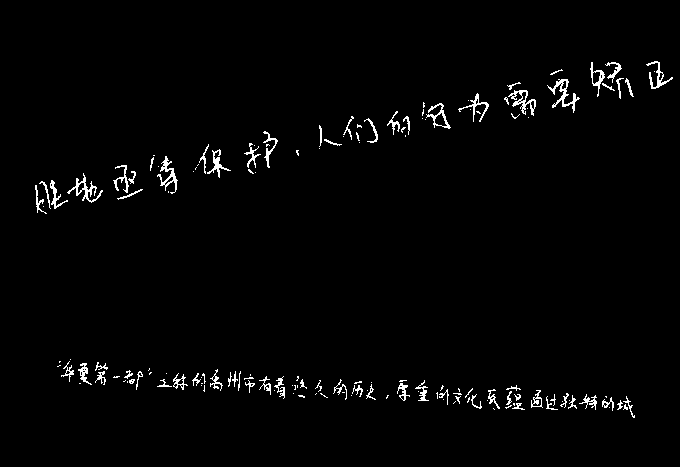 胜地亟待保护，人们的行为需要矫正
“华夏第一都”之称的禹州市有着悠久的历史，厚重的文化底蕴通过独特的城